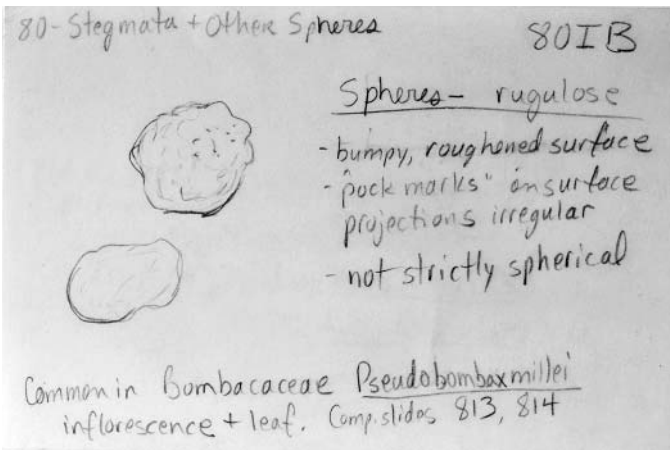 80-Stegmata + Other Spheres
80IB
Spheres - rugulose
- bumpy, roughened surface
- "pock marks" on surface
projections irregular
- not strictly spherical
Common in Bombacaceae Pseudobombax millei
inflorescence + leaf. Comp. slides 813, 814